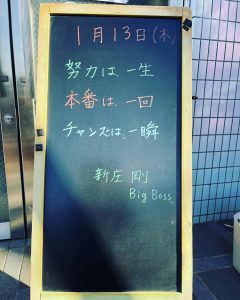 1月13日(木)
努力は、一生
本番は、一回
チャンスは、一瞬
新庄 剛
Big Boss